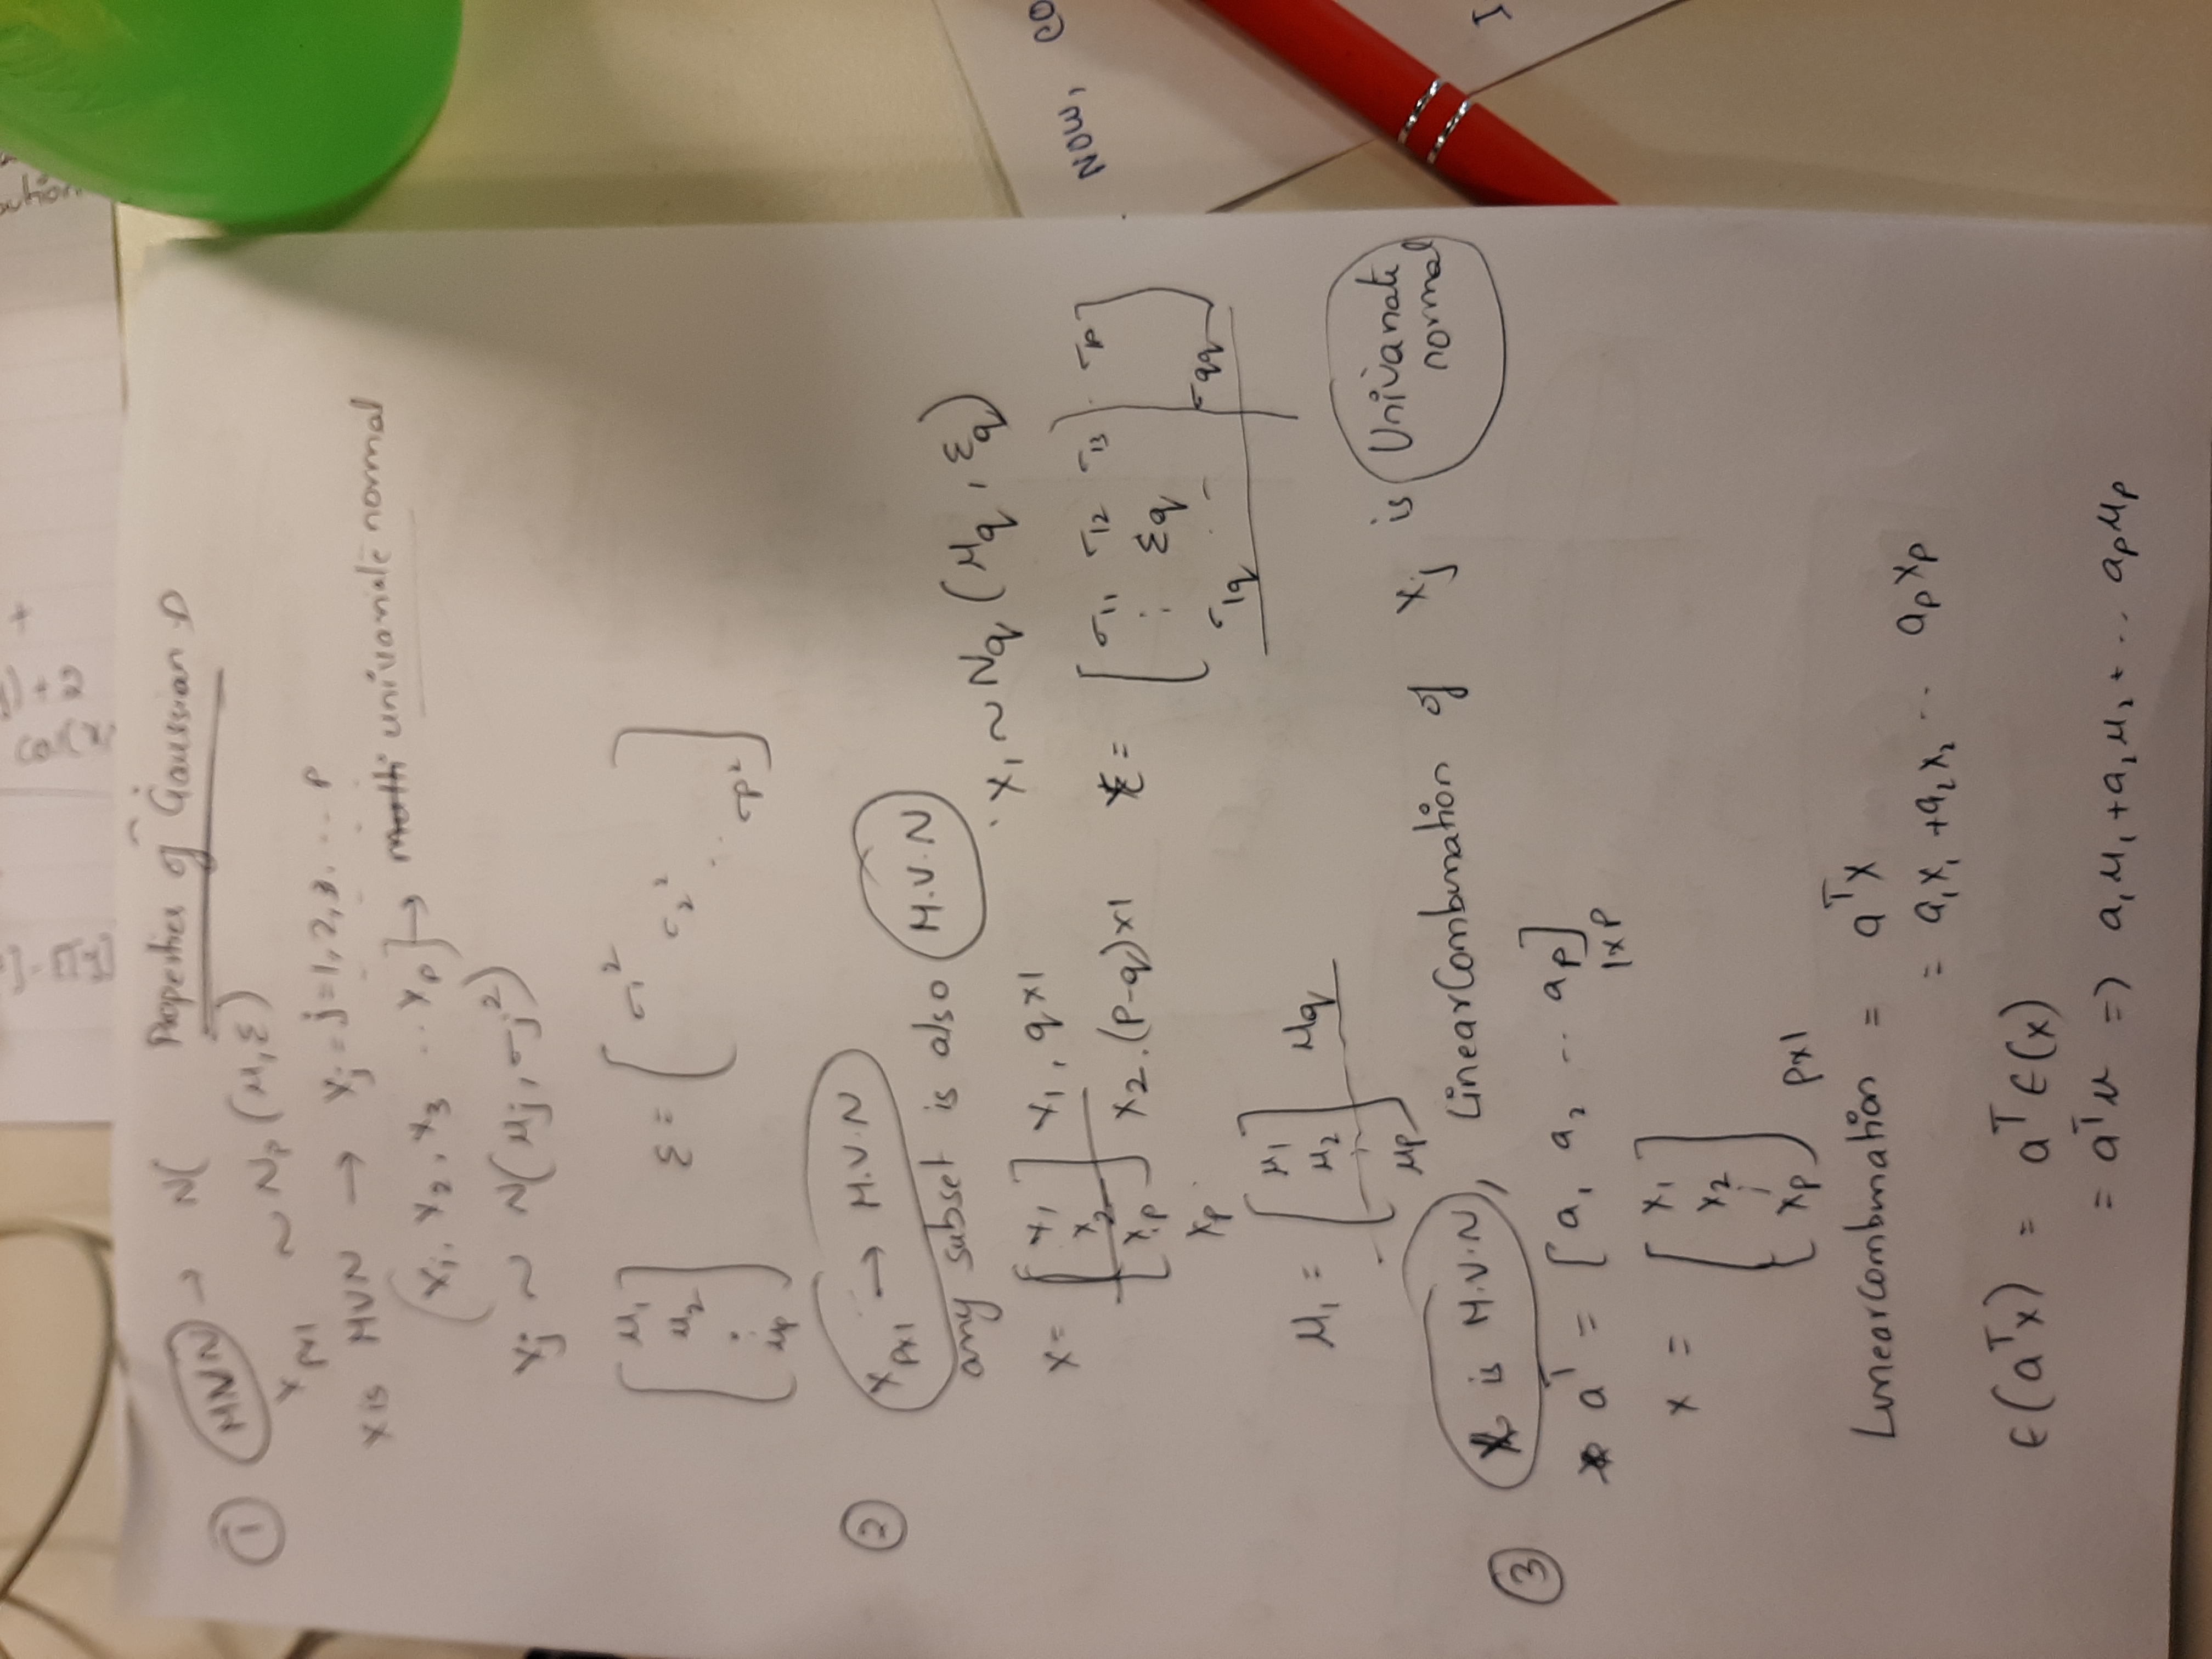 Properties of Gaussian D
① MNN → N(
X p×1 ~ Np (μ, Σ)
X is MVN → Xj = j=1, 2, 3, ... P
(X1, X2, X3 ... Xp] → multi univariate normal
Xj ~ N(μj, σj²)
[μ1 μ2 : μp] Σ = [σ1² σ2² .. σp²]
② X p×1 → M.V.N
any subset is also M.V.N
X1 ~ Nq (μq, Σq)
X = [X1 X2 Xp] X1, q×1
X2. (P-q)×1
Xp
Σ = [σ11 σ12 σ13 . σp
: Σq
σ1q . - σqq]
μ1 = [μ1 μ2 : μp] μq
③ X is M.V.N, Linear Combination of Xj is Univariate normal
aᵀ = [a1 a2 .. ap] 1×P
X = [X1 X2 : Xp] P×1
Linear combination = aᵀX
= a1X1 + a2X2 .. apXp
E(aᵀX) = aᵀE(X)
= aᵀμ => a1μ1 + a2μ2 + .. apμp
NOW, CO
I
+